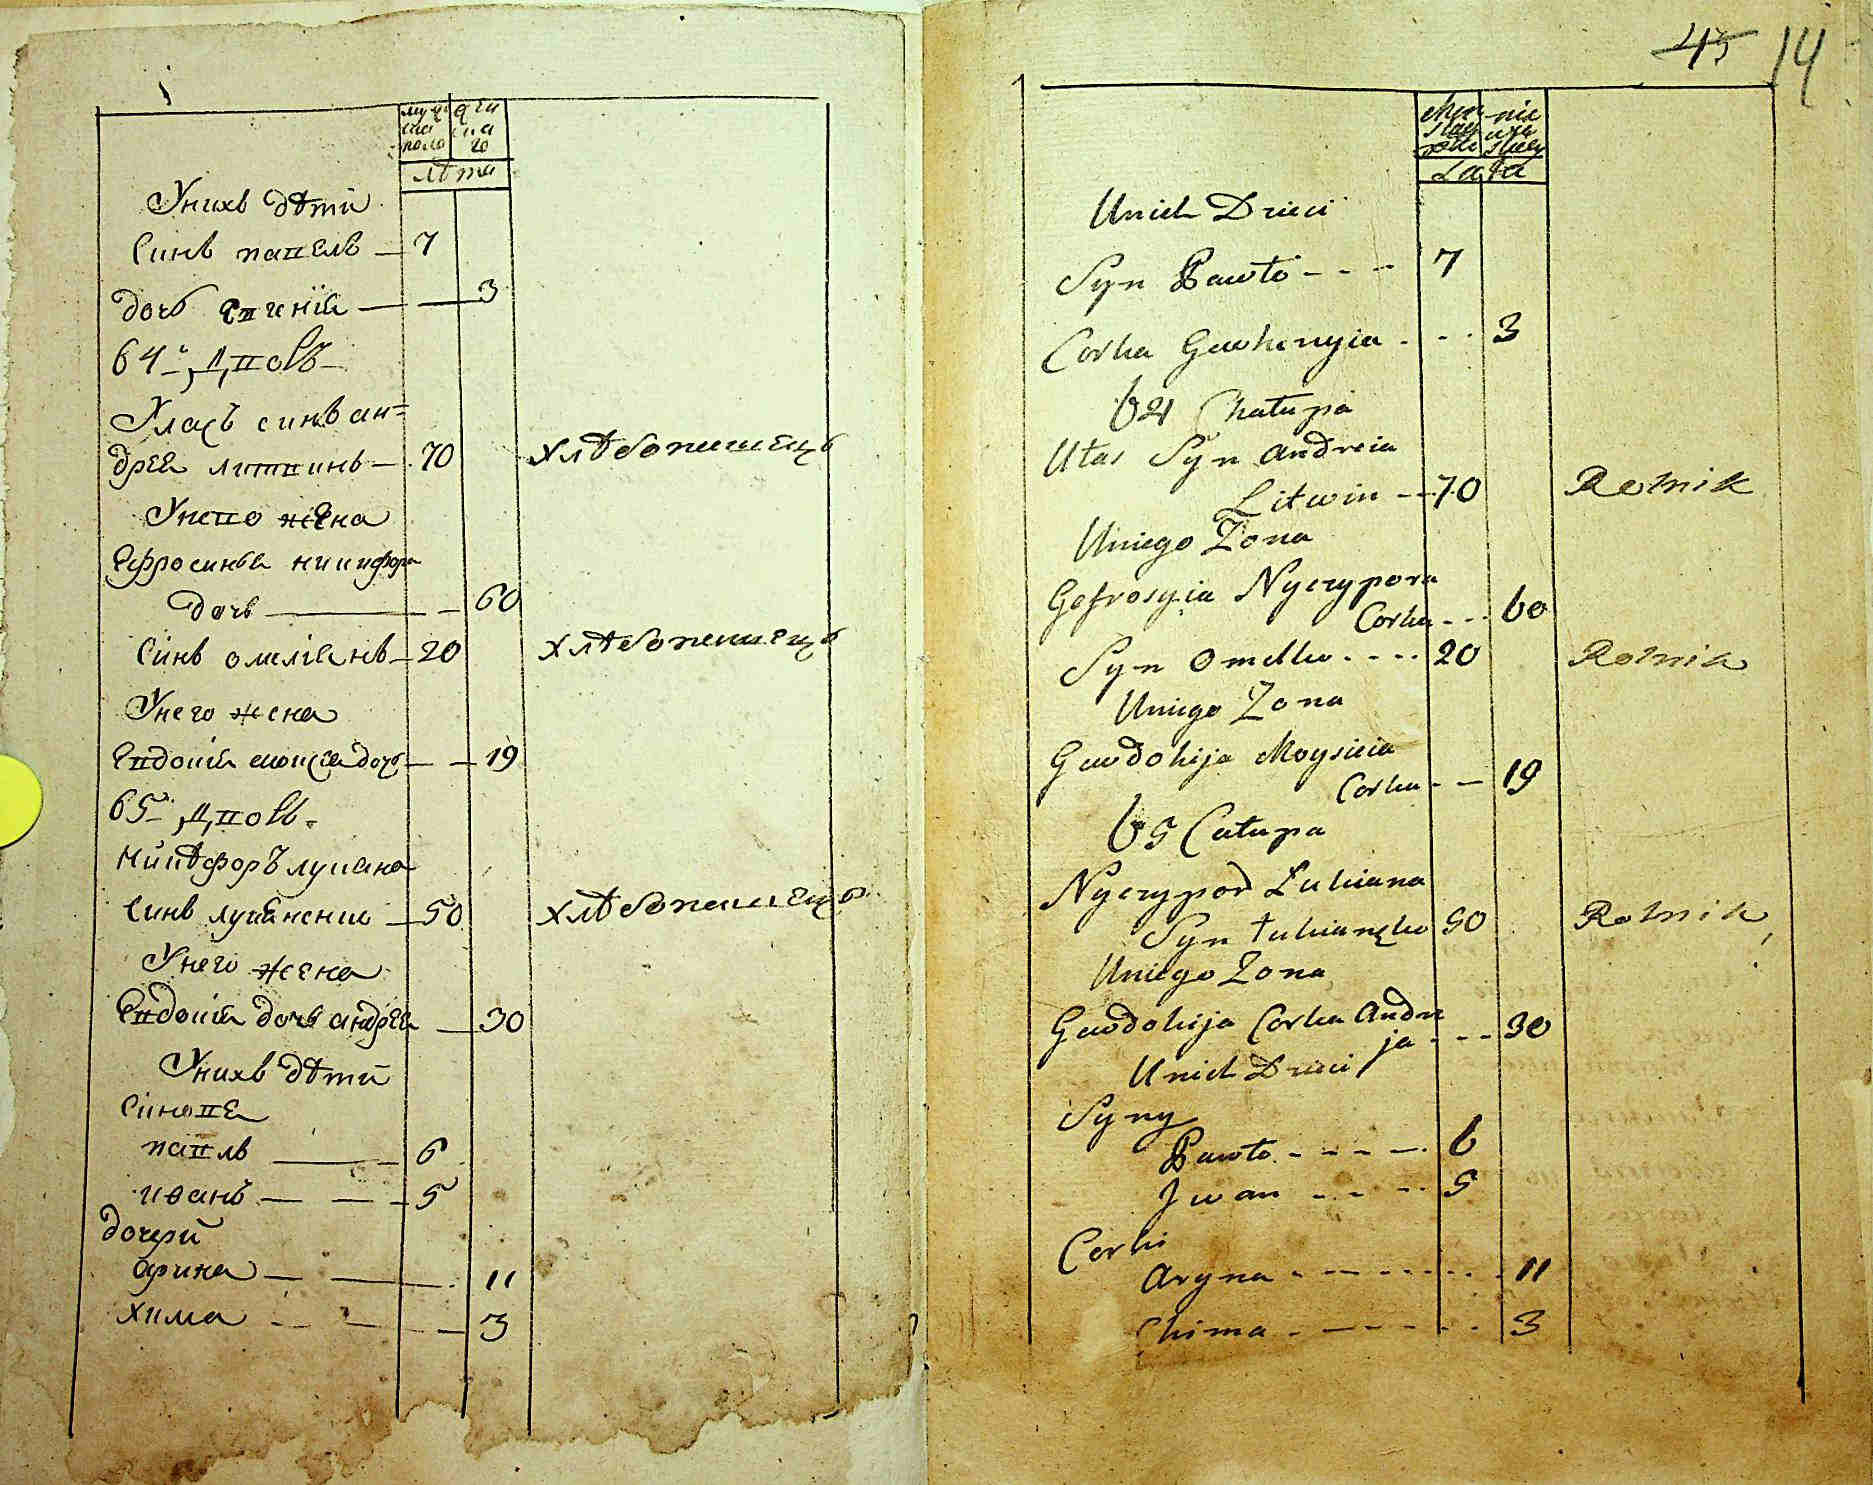 мужеска полу
женскаго
лѣта
Унихъ дѣти
Синъ павелъ — 7
дочь Евгенія — — 3
64. Дворъ
Уласъ синъ ан-
дрея литвинъ — 70 хлѣбопашецъ
Унево жена
Ефросинья никифора
дочь — 60
Синъ омеліянъ — 20 хлѣбопашецъ
Унего жена
Евдокія моисея дочь — — 19
65 Дворъ
Никѣфоръ лукяна
синъ лукяненко — 50 хлѣбопашецъ
Унего жена
Евдокія дочь андрея — 30
Унихъ дѣти
Синовя
павлъ — 6
иванъ — — — 5
дочери
Орина — — 11
хима — — — 3
45 14
Lata
Unich Dzieci
Syn Pawło - - - 7
Corka Gewhenyia - - - 3
64 Chałupa
Ułas Syn Andreia
Litwin - - 70 Rolnik
Uniego Zona
Gefrosyia Nyczypora
Corka - - - 60
Syn Omelko - - - - 20 Rolnik
Uniego Zona
Gewdokija Moysieia
Corka - - 19
65 Całupa
Nyczypor Łukiana
Syn Łukianęko 50 Rolnik
Uniego Zona
Gewdokija Corka Andre
ja - - - 30
Unich Dzieci
Syny
Pawło - - - - - 6
Jwan - - - - - 5
Corki
Aryna - - - - - - - 11
Chima - - - - - - 3